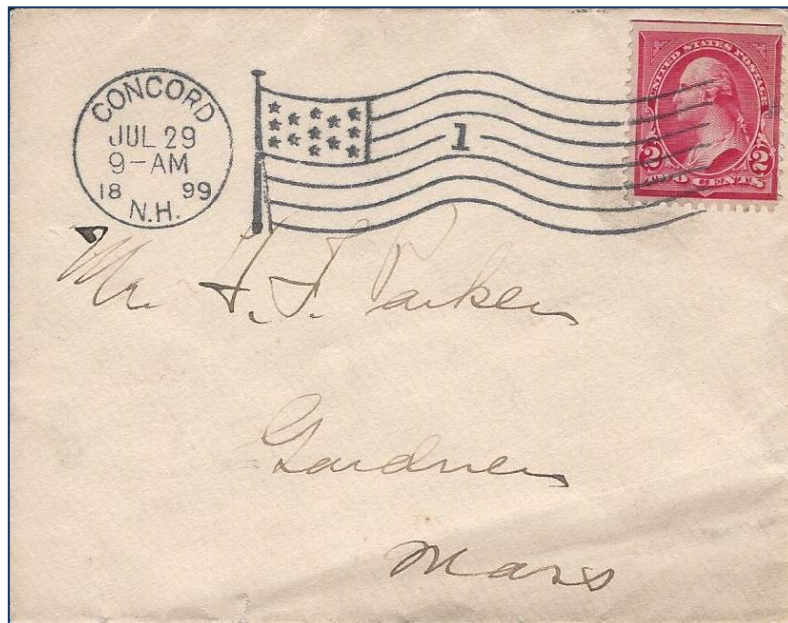 CONCORD
JUL 29
9-AM
18 99
N.H.
1
UNITED STATES POSTAGE
2 2
TWO CENTS
Mr. H. F. Parker
Gardner
Mass